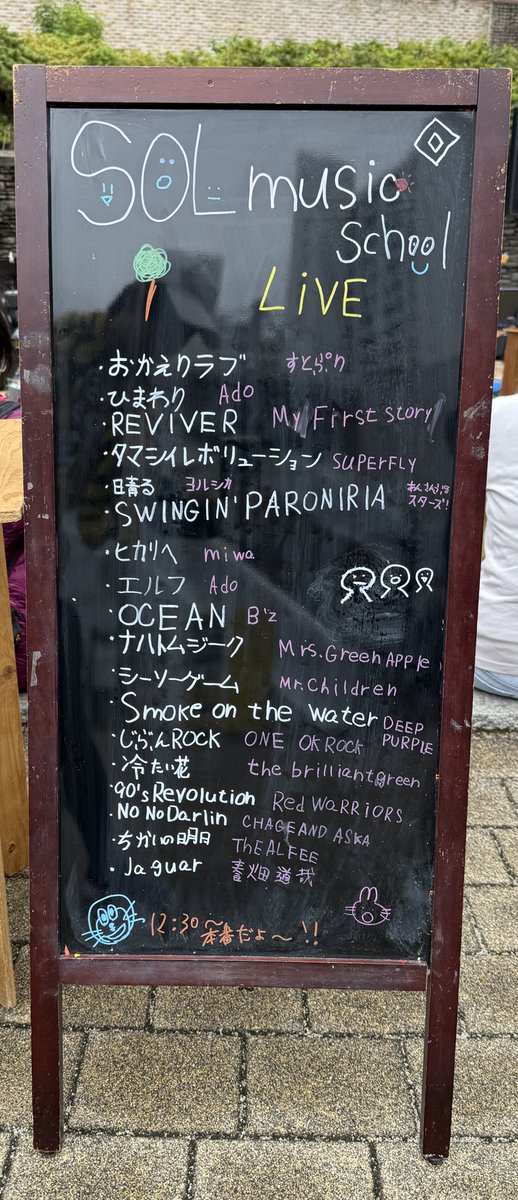 SOL music
school
LiVE
・おかえりラブ すとぷり
・ひまわり Ado
・REVIVER My First Story
・タマシイレボリューション SUPERFLY
・晴る ヨルシカ
・SWINGIN' PARONIRIA スターズ!
・ヒカリへ miwa
・エルフ Ado
・OCEAN B'z
・ナハトムジーク Mrs. Green APPle
・シーソーゲーム Mr.Children
・Smoke on the water DEEP PURPLE
・じぶんROCK ONE OK ROCK
・冷たい花 the brilliant green
・90's Revolution Red WARRIORS
・NO NO Darlin CHAGE AND ASKA
・ちかいの明日 ThE ALFEE
・Jaguar 春畑道哉
12:30〜本番だよ〜!!